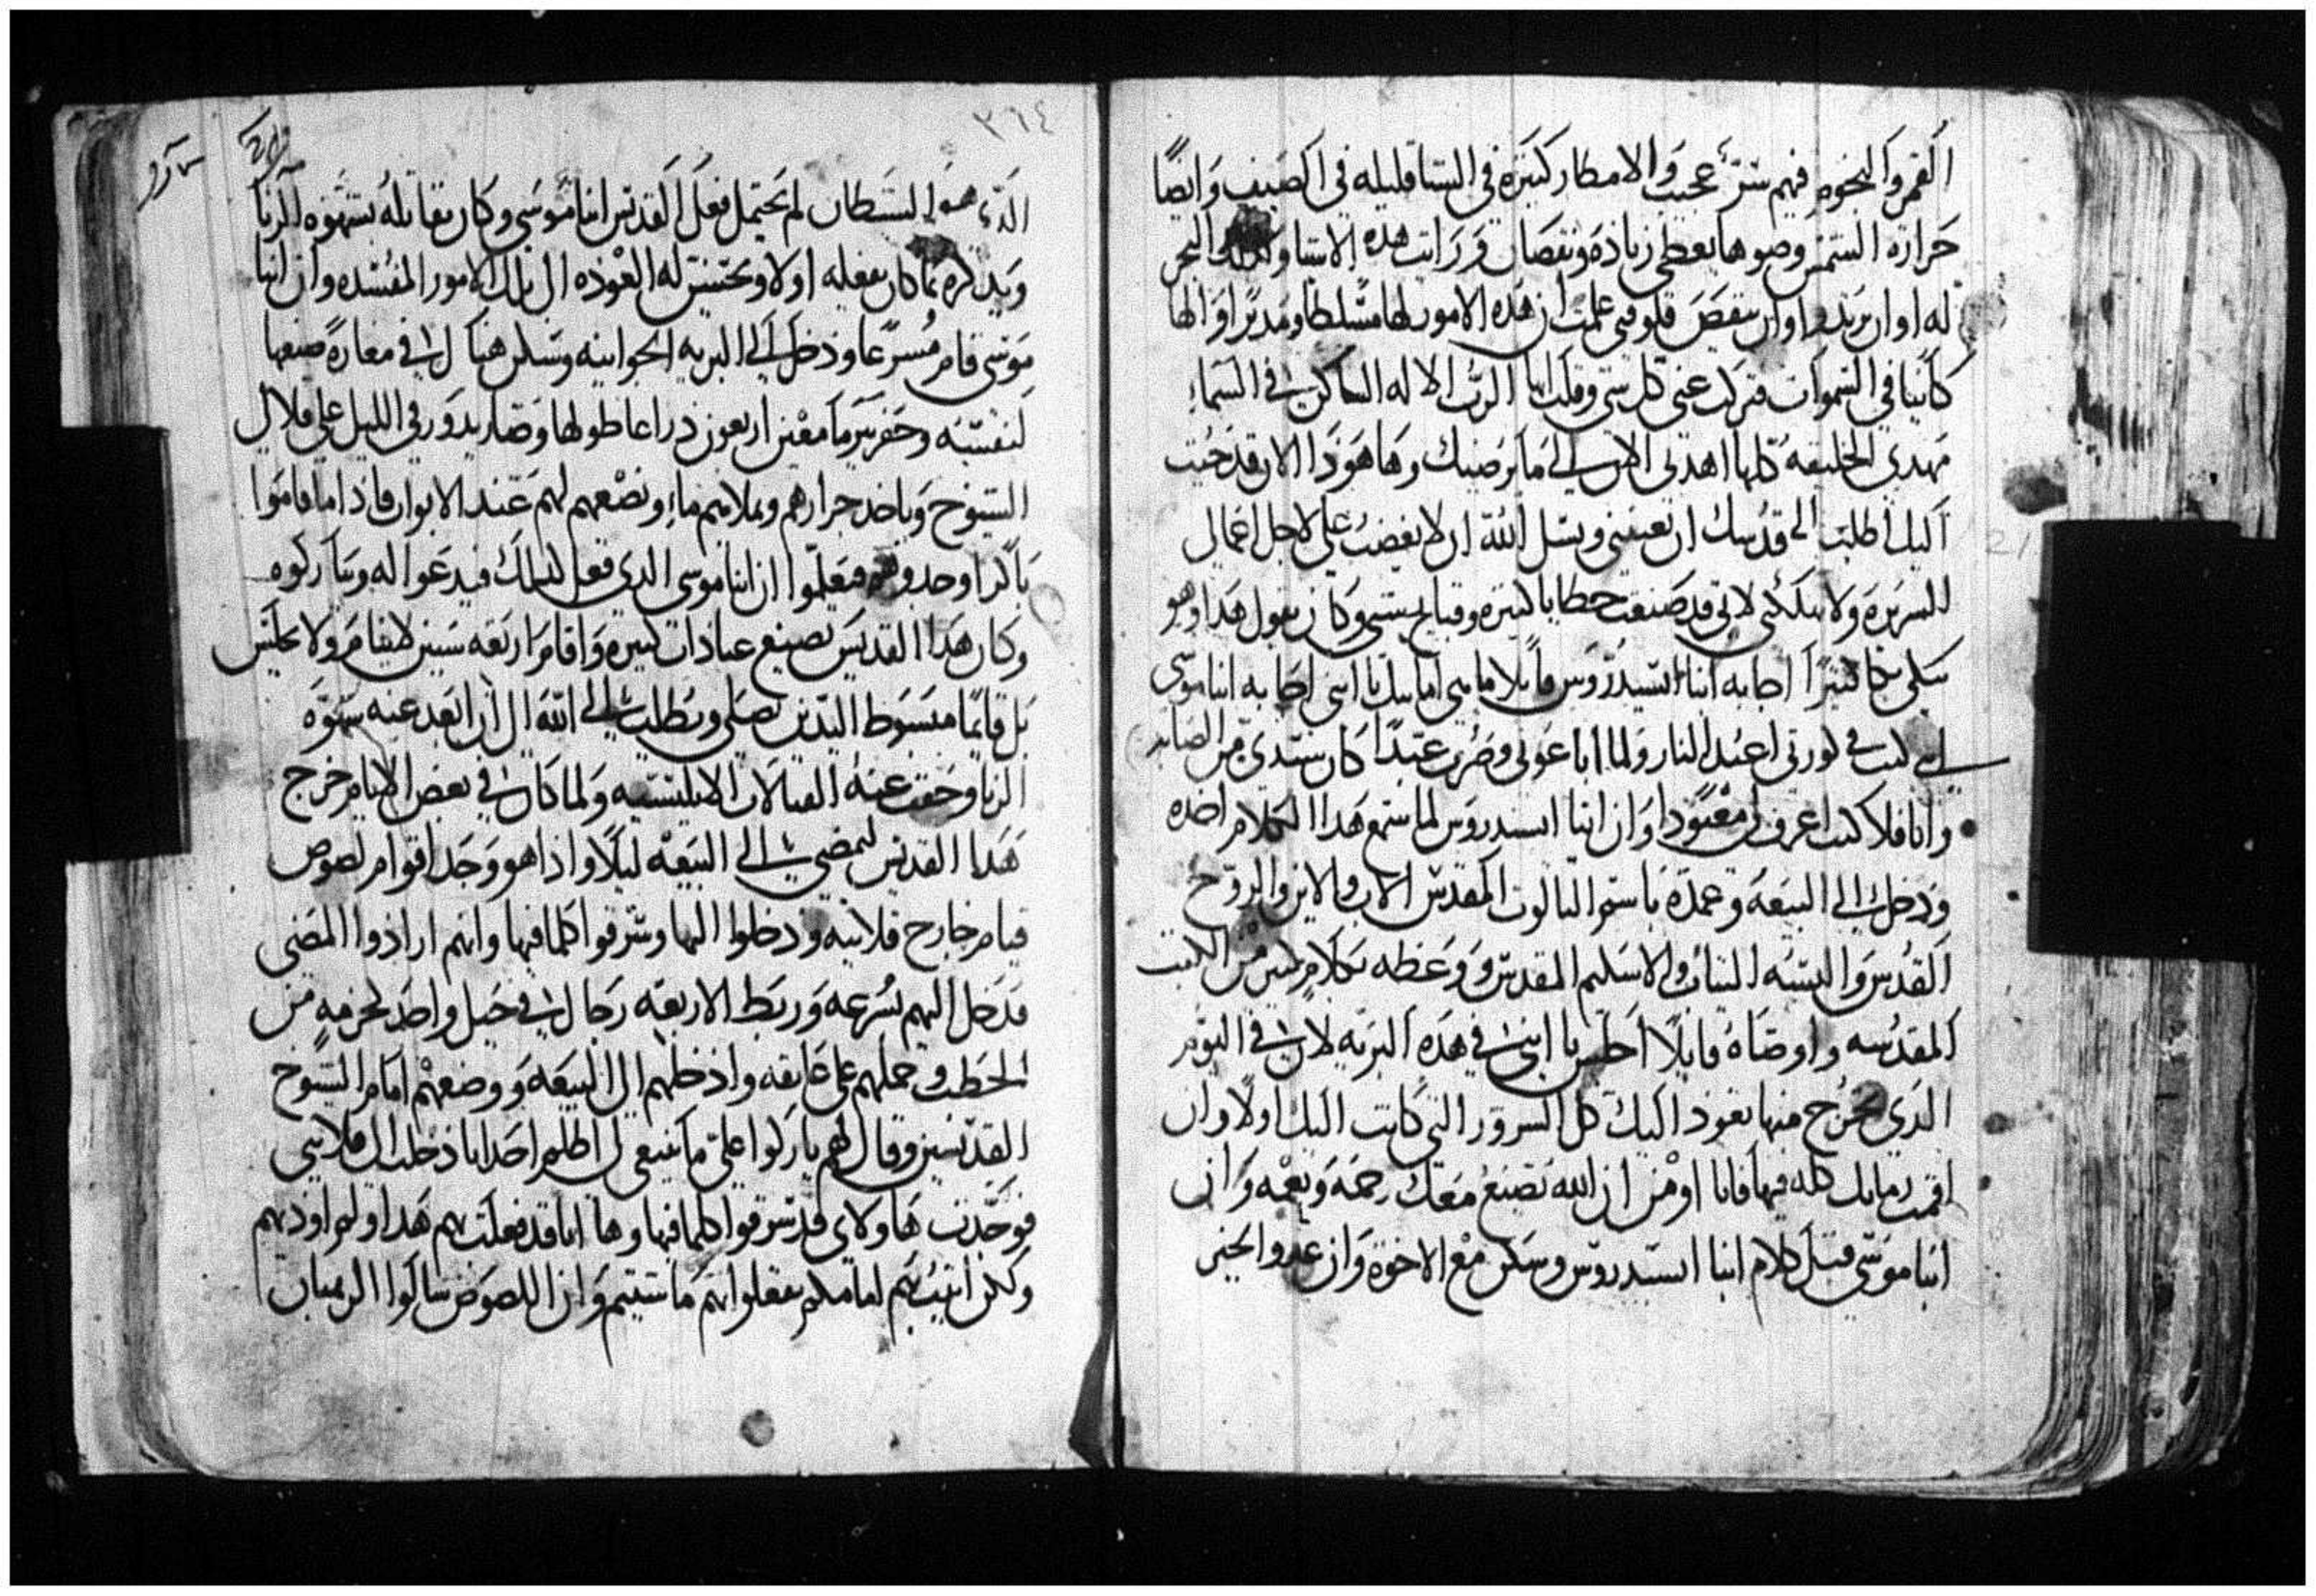 القمر والنجوم فيهم سر عجيب والامطار كثيره في الشتا قليله في الصيف وايضا
حرارة الشمس وضوها يعطي زياده ونقصان ورايت هده الاشيا والبحر
له اوان يزيد واوان ينقص قلوقتي علمت ان هده الامور لها مسلطا ومدبرا والها
كاينا في السموات فتركت عني كل شي وقلت ايها الرب الاله الساكن في السماء
مهدي الخليقه كلها اهدني الان الي ما يرضيك وها هودا الان قد جيت
اليك اطلب الى قدسك ان تعينني وتسل الله ان لا يغضب علي لاجل اعمالي
الشريره ولا يهلكني لاني قد صنعت خطايا كثيره وقبايح شتى وكان يقول هدا وهو
يبكي بكا كثيرا اجابه انبا اسيدروس قايلا ما هي اماتك يا ابني اجابه انبا موسى
اني كنت في كورتي اعبد النار ولما اباعوني وصرت عبدا كان سيدي من الصابه
وانا فلا كنت اعرف لي معبودا وان انبا اسيدروس لما سمع هدا الكلام اخده
ودخل الى البيعه وعمده باسم التالوت المقدس الاب والابن والروح
القدس والبسه التياب والاسكيم المقدس ووعظه بكلام كثير من الكتب
المقدسه واوصاه قايلا اجلس يا ابني في هده البريه لان في اليوم
الدي تخرج منها تعود اليك كل الشرور التي كانت اليك اولا وان
اقمت زمانك كله فيها فانا اومن ان الله يصنع معك رحمه ونعمه وان
انبا موسى قبل كلام انبا اسيدروس وسكن مع الاخوة وان عدو الخير
٣٦٤
الدي هو الشيطان لم يحتمل فعل القديس انبا موسى وكان يقاتله بشهوه الزنا
ويدكره بما كان يفعله اولا ويحسن له العوده الى تلك الامور المفسده وان انبا
موسى قام مسرعا ودخل الى البريه الجوانيه وسكن هناك في مغاره صنعها
لنفسه وحفر بير ما معين اربعون دراعا طولها وصار يدور في الليل على قلالي
الشيوخ وياخد جرارهم ويملاهم ماء ويضعهم لهم عند الابواب فادا ما قاموا
باكرا وجدوهم فيعلموا ان انبا موسى الدي فعل دلك فيدعوا له ويباركوه
وكان هدا القديس يصنع عبادات كثيره واقام اربعه سنين لا ينام ولا يجلس
بل قايما مبسوط اليدين يصلي ويطلب الى الله الى ان ابعد عنه شهوه
الزنا وخفت عنه القتالات الابليسيه ولما كان في بعض الايام خرج
هدا القديس ليمضي الى البيعه ليلا وادا هو وجد اقوام لصوص
قيام خارج قلايته ودخلوا اليها وسرقوا كلما فيها وانهم ارادوا المضي
فدخل اليهم بسرعه وربط الاربعه رجال في حبل واحد كحزمه من
الحطب وحملهم على عاتقه وادخلهم الى البيعه ووضعهم امام الشيوخ
القديسين وقال لهم باركوا علي ما ينبغي لي اظلم احدا انا دخلت الى قلايتي
فوجدت هاولاي قد سرقوا كلما فيها وها انا قد فعلت بهم هدا ولم اوديهم
ولكن اتيت بهم امامكم تفعلوا بهم ما شيتم وان اللصوص سالوا الرهبان